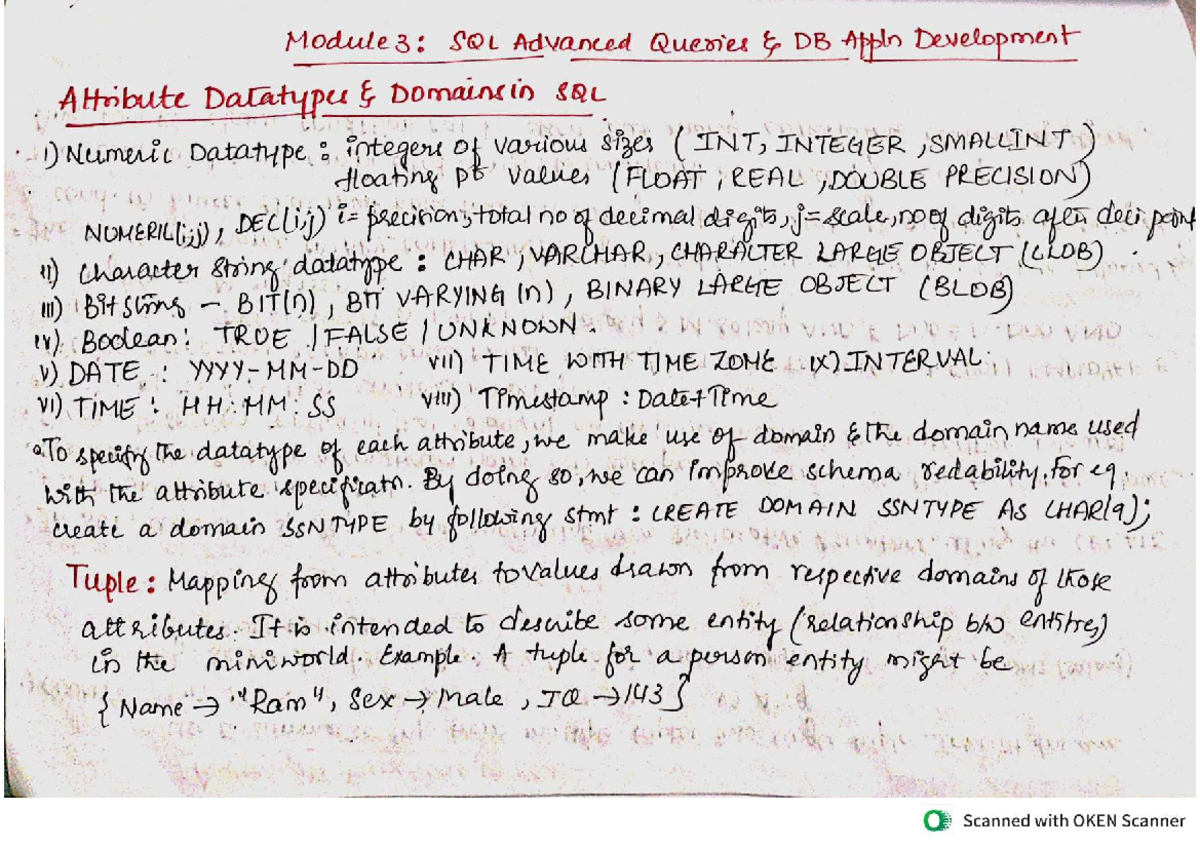 Module 3: SQL Advanced Queries & DB Appln Development
Attribute Datatypes & Domains in SQL
i) Numeric Datatype : integers of various sizes (INT, INTEGER, SMALLINT)
floating pt values (FLOAT, REAL, DOUBLE PRECISION)
NUMERIC(i,j), DEC(i,j) i= precision, total no of decimal digits, j= scale, no of digits after deci point
ii) Character string datatype : CHAR, VARCHAR, CHARACTER LARGE OBJECT (CLOB)
iii) Bit Strings - BIT(n), BIT VARYING (n), BINARY LARGE OBJECT (BLOB)
iv) Boolean: TRUE / FALSE / UNKNOWN.
v) DATE : YYYY-MM-DD vii) TIME WITH TIME ZONE ix) INTERVAL
vi) TIME : HH:MM:SS viii) Timestamp : Date+Time
To specify the datatype of each attribute, we make use of domain & the domain name used
with the attribute specificatn. By doing so, we can improve schema redability. for eg.
create a domain SSNTYPE by following stmt : CREATE DOMAIN SSNTYPE AS CHAR(9);
Tuple : Mapping from attributes to values drawn from respective domains of those
attributes. It is intended to describe some entity (relationship b/w entities)
in the miniworld. Example. A tuple for a person entity might be
{ Name → "Ram", Sex → Male, IQ → 143 }
Scanned with OKEN Scanner